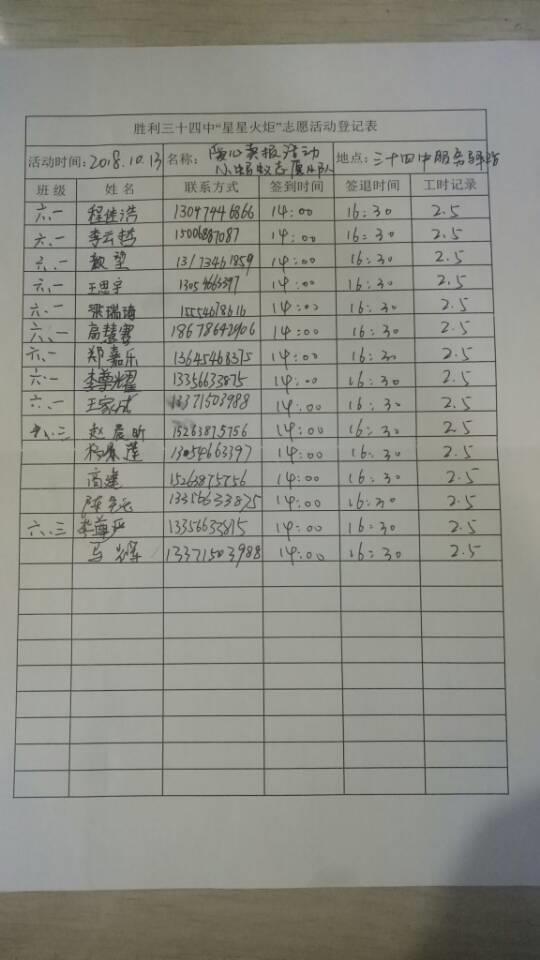 胜利三十四中“星星火炬”志愿活动登记表
活动时间：2018.10.13 名称：暖心卖报活动 小蚂蚁志愿小队 地点：三十四中服务驿站
班级 姓名 联系方式 签到时间 签退时间 工时记录
六.一 程继浩 13047446866 14:00 16:30 2.5
六.一 李云哲 15006887087 14:00 16:30 2.5
六.一 敖望 13173461859 14:00 16:30 2.5
六.一 王思宇 13054663397 14:00 16:30 2.5
六.一 梁瑞涛 15554678616 14:00 16:30 2.5
六.一 高慧雯 18678642906 14:00 16:30 2.5
六.一 郑嘉乐 13645468375 14:00 16:30 2.5
六.一 李尊耀 13356633875 14:00 16:30 2.5
六.一 王家成 13371503988 14:00 16:30 2.5
六.三 赵晨昕 15263875756 14:00 16:30 2.5
杨 13054663397 14:00 16:30 2.5
高 15263875756 14:00 16:30 2.5
陈 13356633875 14:00 16:30 2.5
六.三 李尊严 13356633815 14:00 16:30 2.5
马辉 13371503988 14:00 16:30 2.5